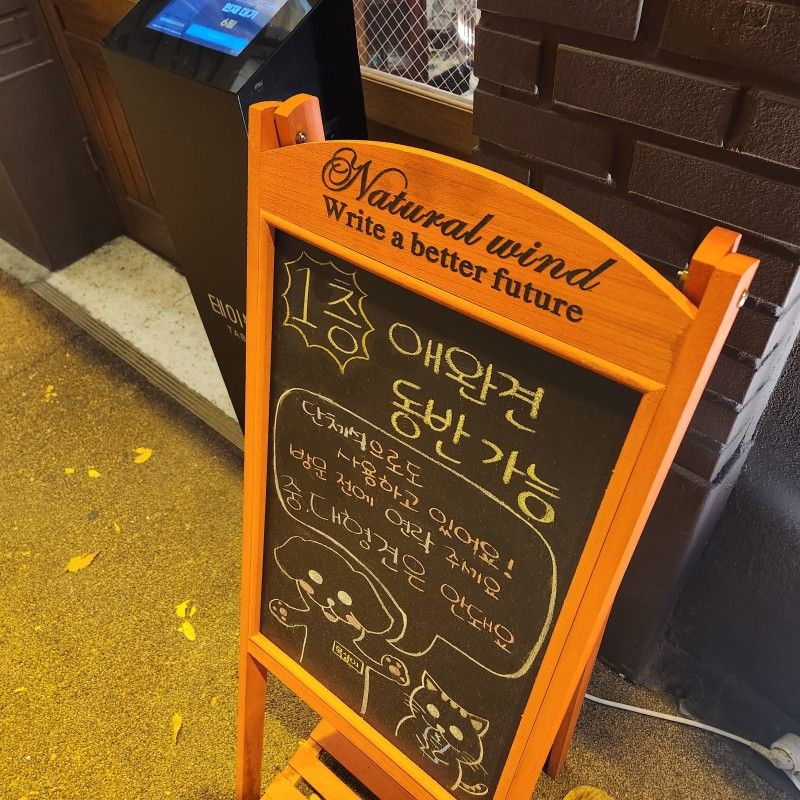 현재 대기
6팀
테이블
TAB
Natural wind
Write a better future
1층 애완견
동반 가능
단체석으로도
사용하고 있어요!
방문 전에 연락 주세요
중,대형견은 안돼요